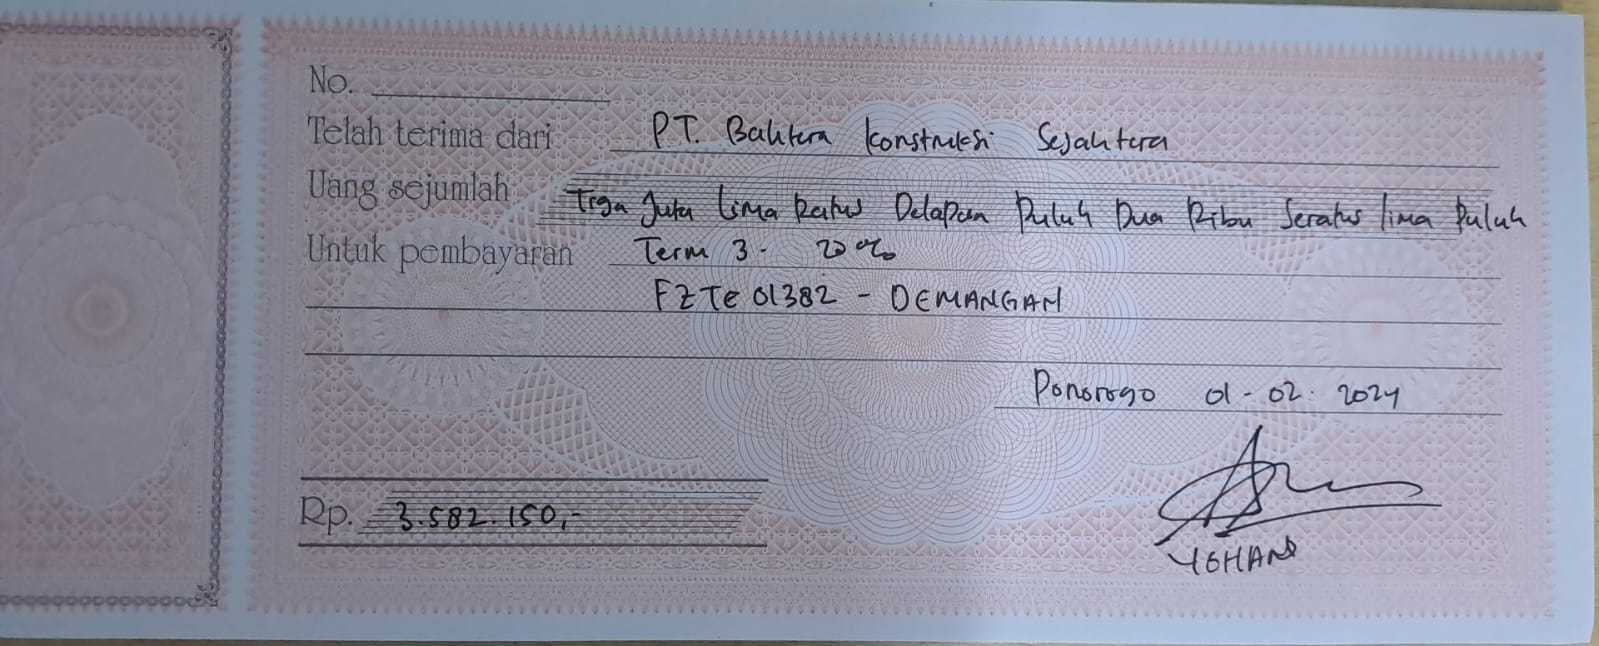 No.
Telah terima dari PT. Bahtera Konstruksi Sejahtera
Uang sejumlah Tiga Juta Lima Ratus Delapan Puluh Dua Ribu Seratus lima Puluh
Untuk pembayaran Term 3 - 20%
FZTE 01382 - DEMANGAN
Ponorogo 01 - 02 - 2024
Rp. 3.582.150,-
YOHAN